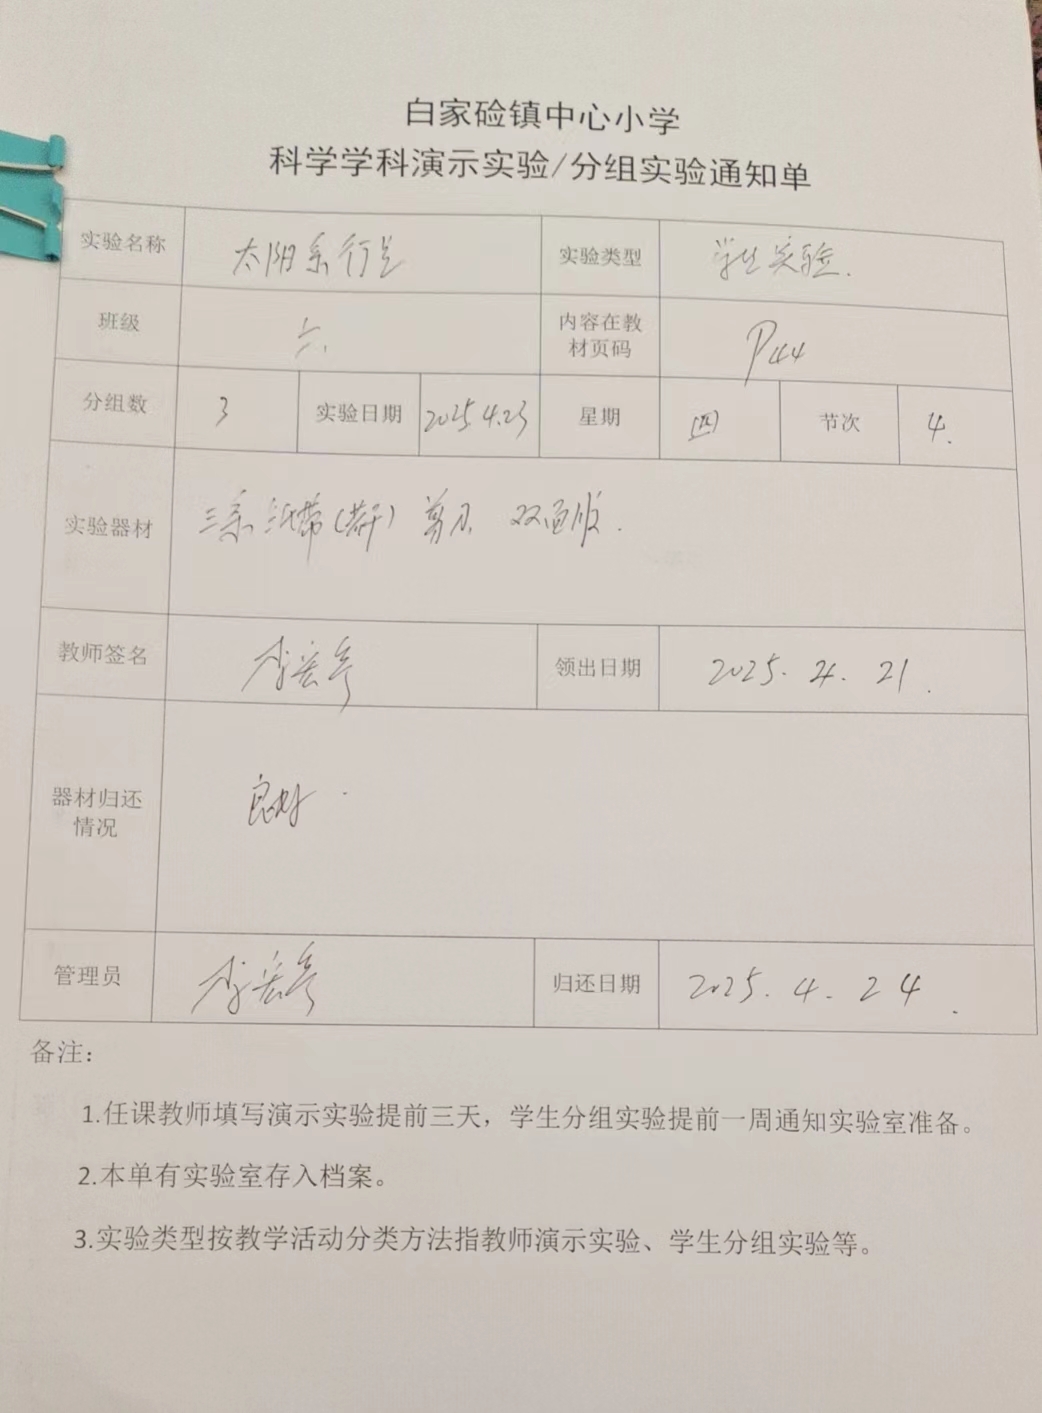 白家硷镇中心小学
科学学科演示实验/分组实验通知单
实验名称 太阳系行星 实验类型 学生实验.
班级 六 内容在教
材页码 P44
分组数 3 实验日期 2025.4.23 星期 四 节次 4.
实验器材 纸带(若干) 剪刀 双面胶.
教师签名 领出日期 2025.4.21.
器材归还
情况 良好.
管理员 归还日期 2025.4.24.
备注:
1.任课教师填写演示实验提前三天，学生分组实验提前一周通知实验室准备。
2.本单有实验室存入档案。
3.实验类型按教学活动分类方法指教师演示实验、学生分组实验等。